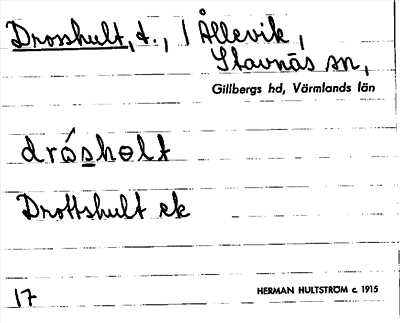 Drosshult, t., / Ållevik,
Stavnäs sn,
Gillbergs hd, Värmlands län
drósholt
Drottshult ek
17
HERMAN HULTSTRÖM c. 1915